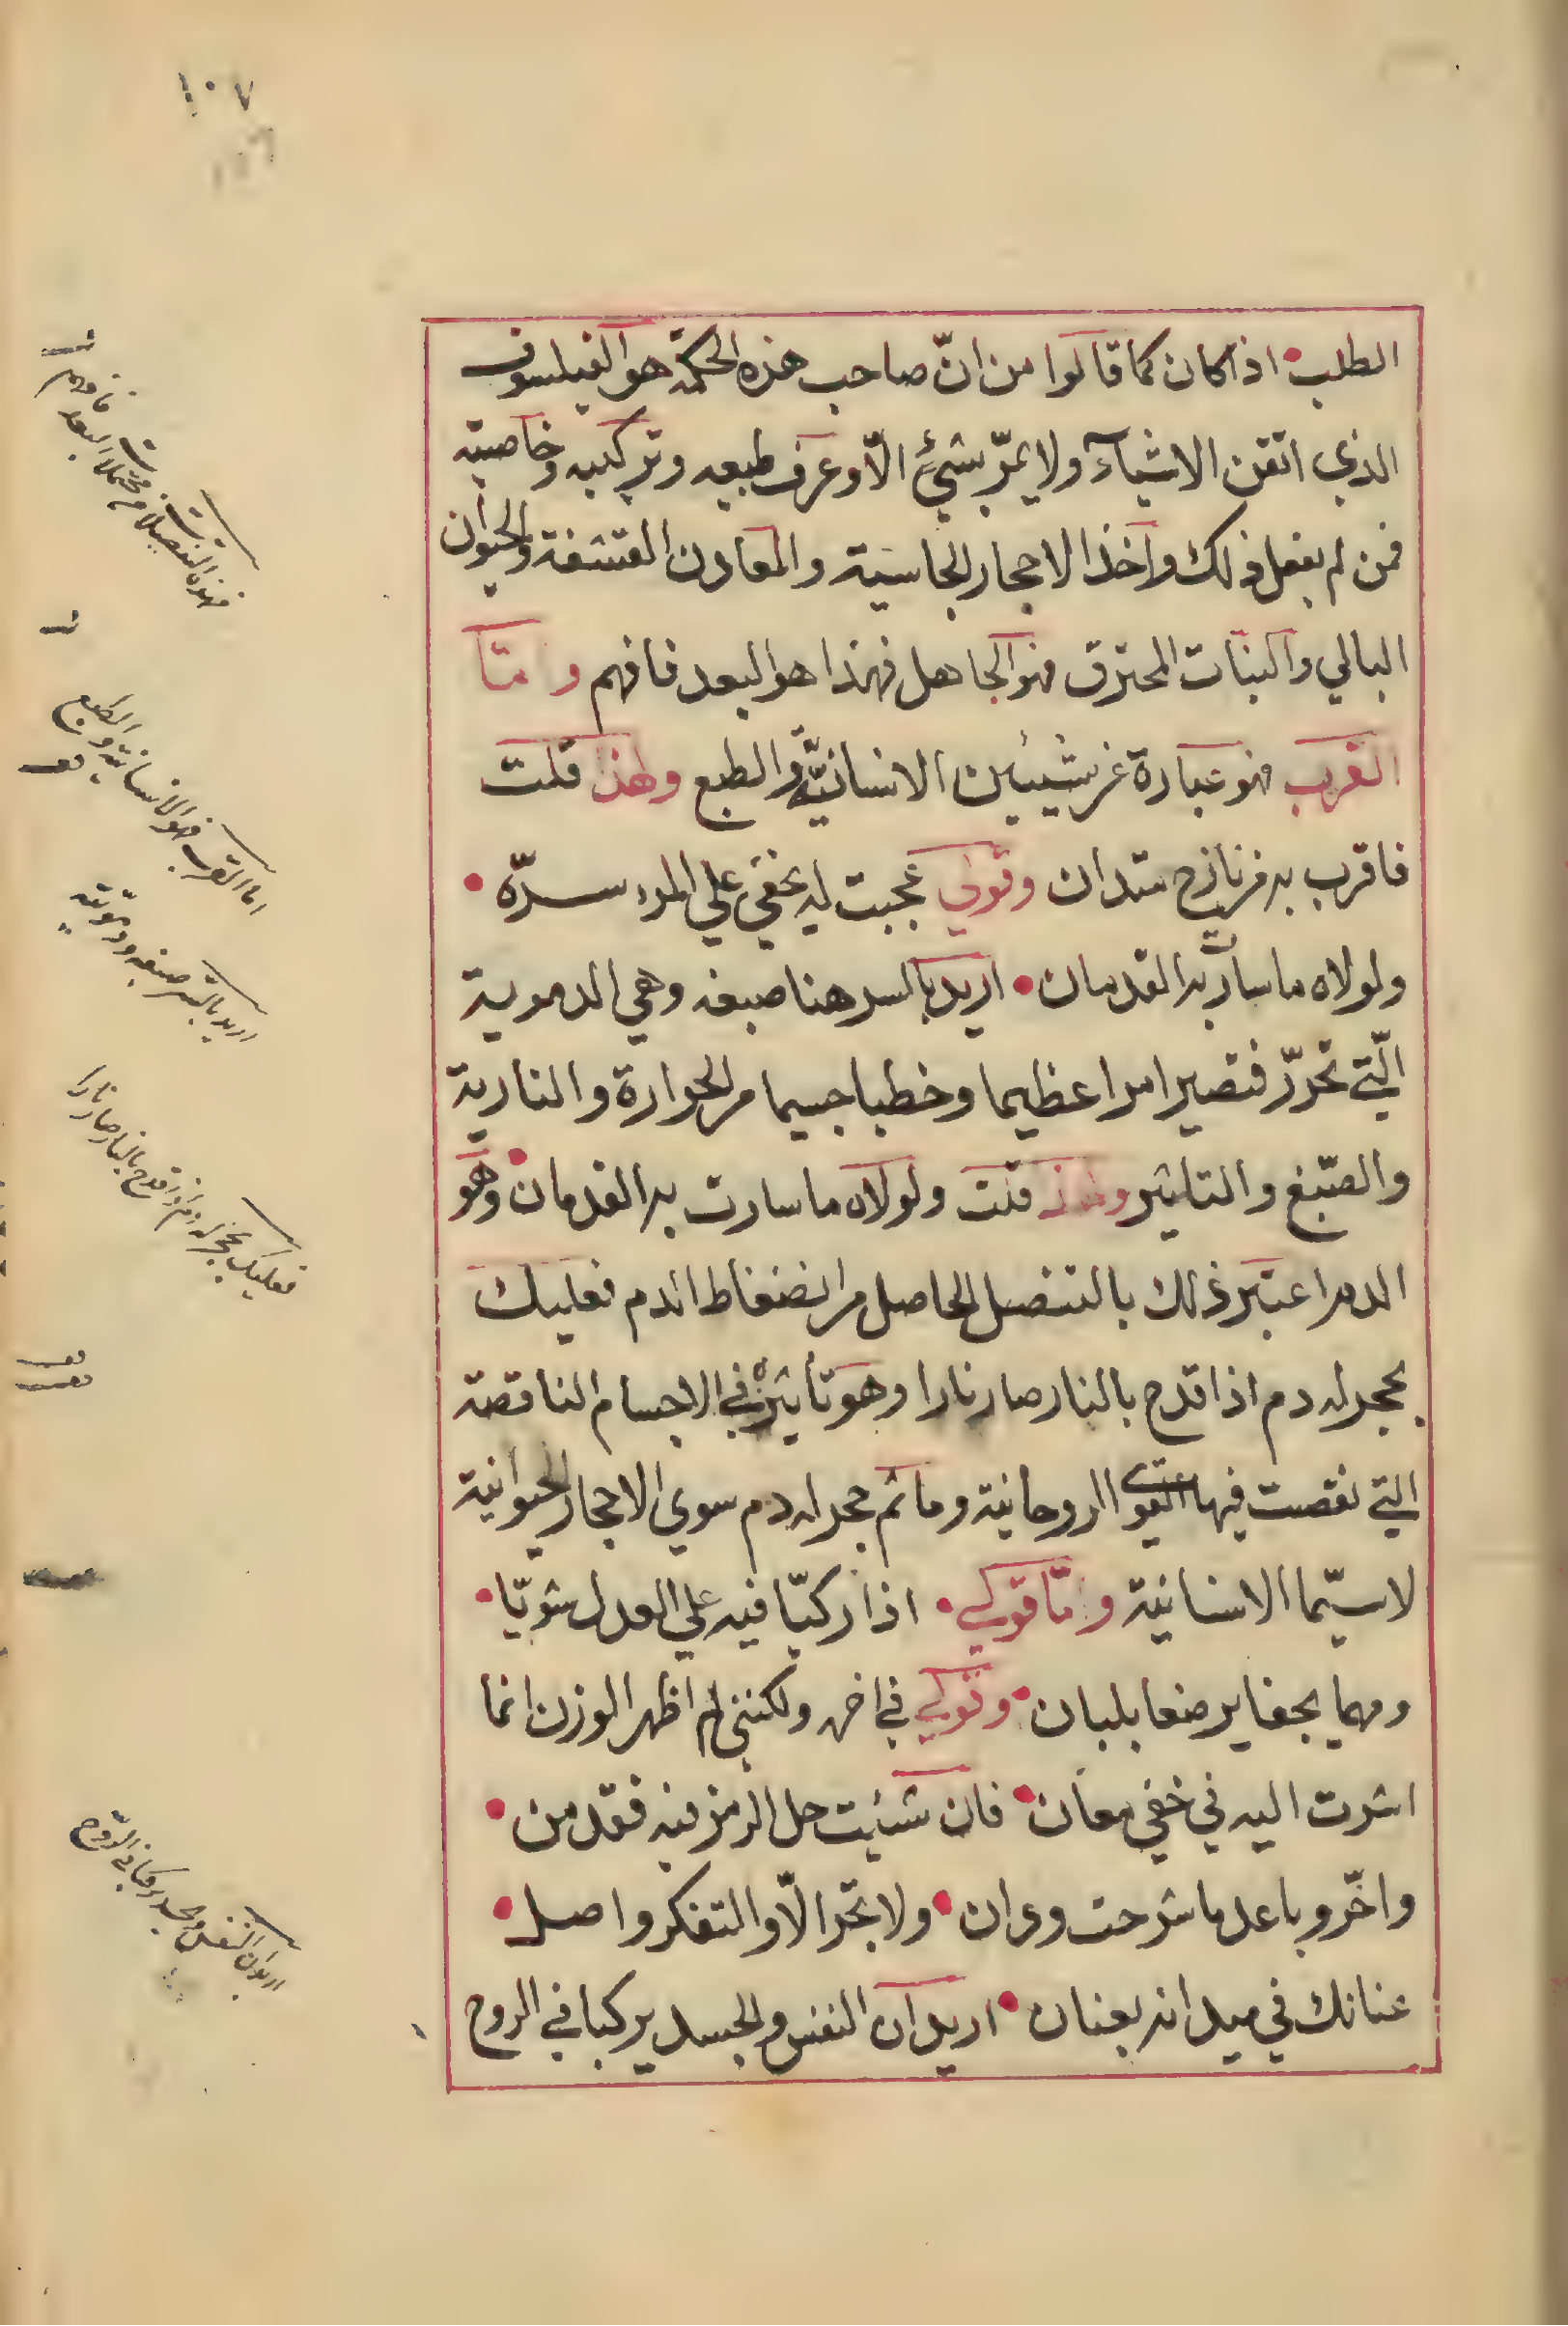 ١٠٧
الطلب • اذا كان كما قالوا من انّ صاحب هذه الحكمة هو الفيلسوف
الذي اتقن الاشيآء ولا يمرّ بشئ الّا وعرف طبعه وتركيبه وخاصيته
فمن لم يفعل ذلك واخذ الاحجار الجاسية والمعادن القشفة والحيوان
البالي والنبات المحترق فهو الجاهل فهذا هو البعد فافهم وامّا
القرب فهو عبارة عن شيئين الانسانيّة والطبع ولهذا قلت
فاقرب به من نازح متدان وقولي عجبت له يخفي علي المرء سرّه •
ولولاه ما سارت به القدمان • اريد بالسر هنا صبغه وهي الدموية
الّتي تحرّر فتصير امرا عظيما وخطبا جسيما من الحرارة والنارية
والصّبغ والتاثير ولهذا قلت ولولاه ما سارت به القدمان • وهو
الدم اعتبر ذلك بالتنصل الحاصل من انضغاط الدم فعليك
بحجر له دم اذا قدح بالنار صار نارا وهو تأثيره في الاجسام الناقصة
التي نقصت فيها القوي الروحانية وما ثم حجر له دم سوي الاحجار الحيوانية
لاسيّما الانسانية وامّا قولي • اذا ركبّا فيه علي العدل شويّا •
ومهما يجفا يرضعا بلبان • وقولي في اخره ولكنني لم اظهر الوزن انما
اشرت اليه في خفي معان • فان شئيت حل الرمز فيه فقدمن •
واخّر وباعد ما شرحت ودان • ولا تجر الّا والتفكر واصل •
عنانك في ميدانه بعنان • اريد ان النفس والجسد يركبا في الروح
فهذه التفصيلات محتملات البعد فافهم
اما القرب فهو الانسانية والطبع
اريد بالسّر صبغه ودمويته
فعليك بحجر له دم اذا قدح بالنار صار نارا
اريد ان النفس والجسد يركبا في الرّوح